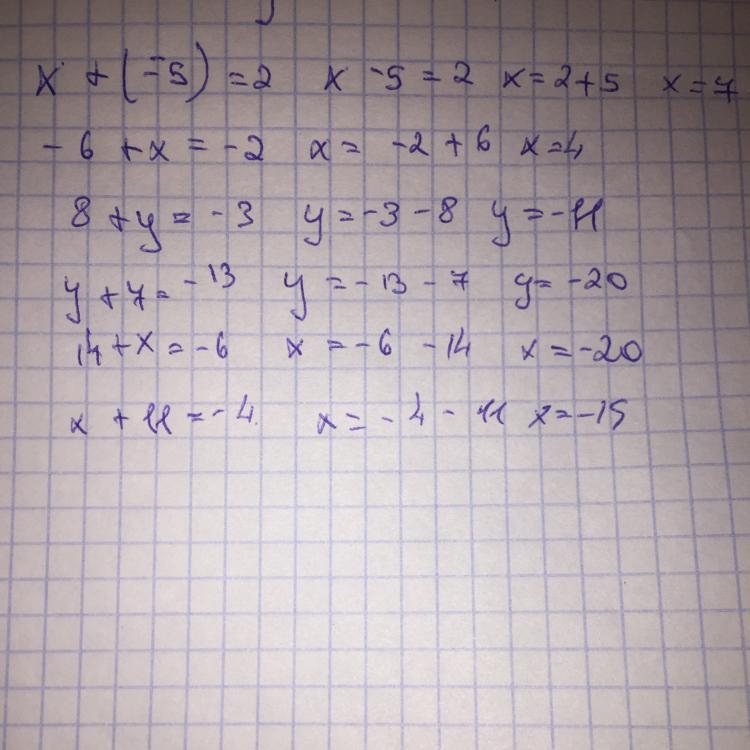 x + (-5) = 2 x -5 = 2 x = 2+5 x = 7
-6 + x = -2 x = -2 + 6 x = 4
8 + y = -3 y = -3 - 8 y = -11
y + 7 = -13 y = -13 - 7 y = -20
14 + x = -6 x = -6 - 14 x = -20
x + 11 = -4 x = -4 - 11 x = -15